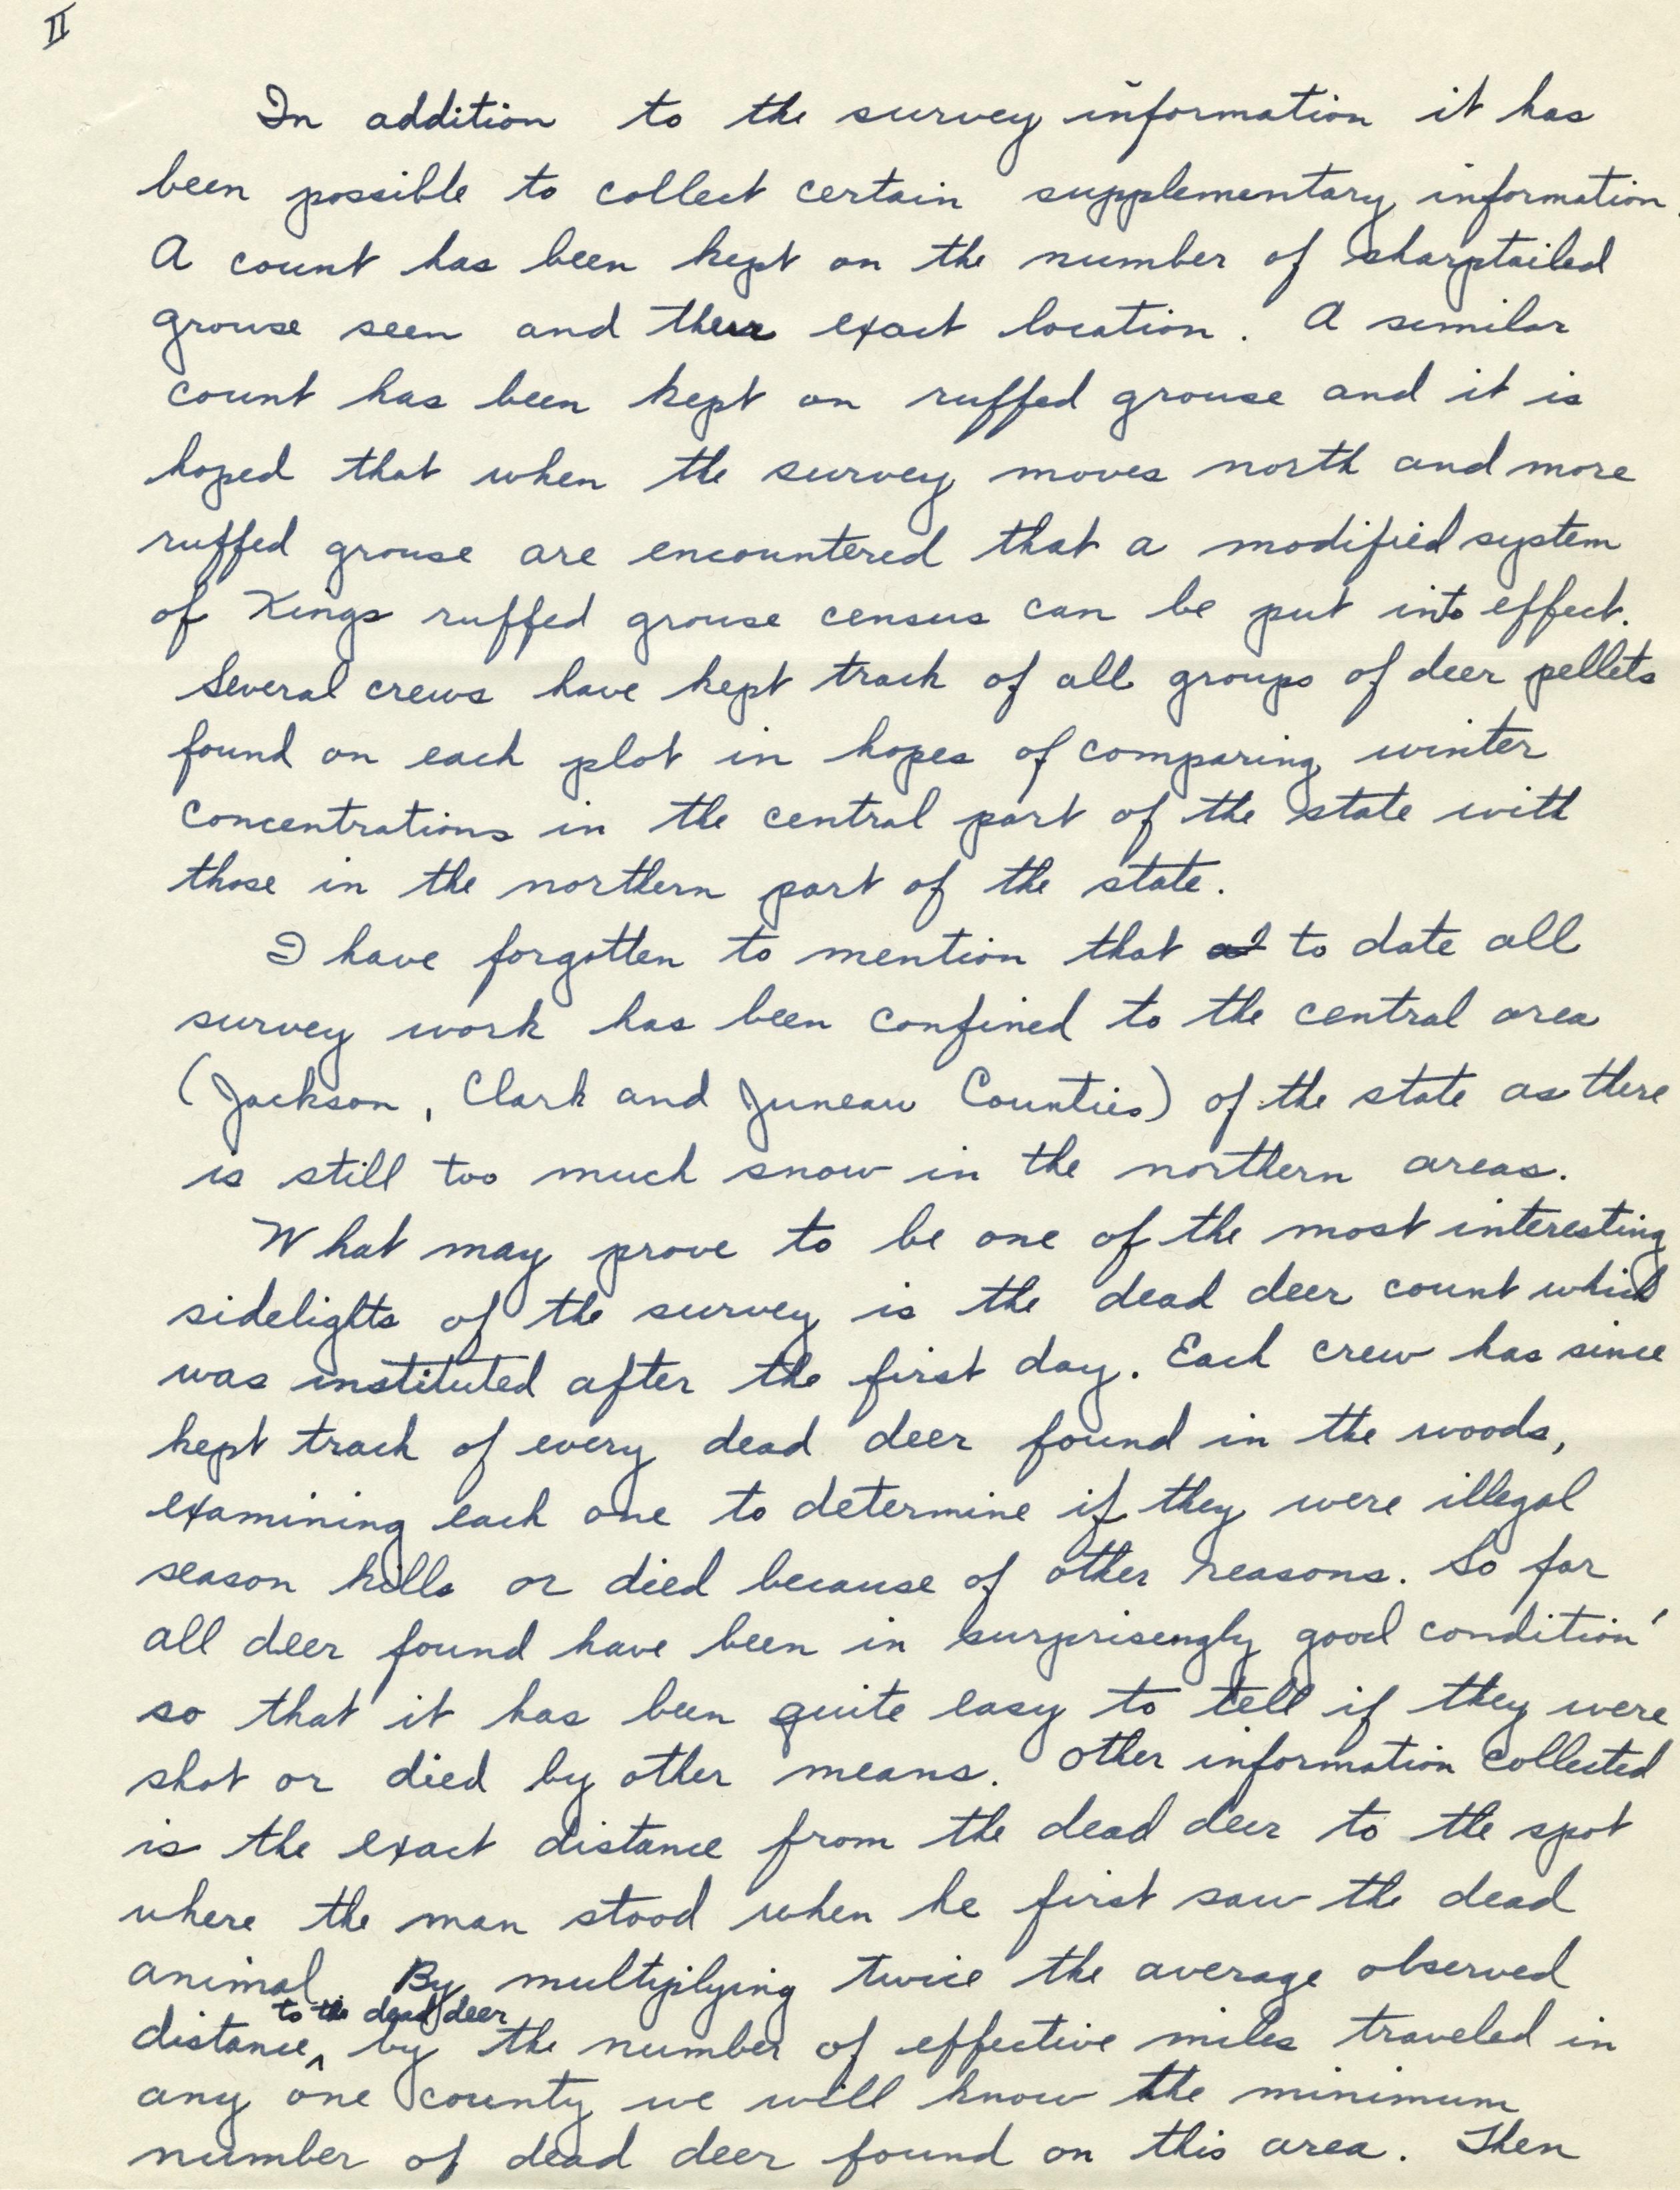 II
In addition to the survey information it has
been possible to collect certain supplementary information
A count has been kept on the number of sharptailed
grouse seen and their exact location. A similar
count has been kept on ruffed grouse and it is
hoped that when the survey moves north and more
ruffed grouse are encountered that a modified system
of Kings ruffed grouse census can be put into effect.
Several crews have kept track of all groups of deer pellets
found on each plot in hopes of comparing winter
concentrations in the central part of the state with
those in the northern part of the state.
I have forgotten to mention that to date all
survey work has been confined to the central area
(Jackson, Clark and Juneau Counties) of the state as there
is still too much snow in the northern areas.
What may prove to be one of the most interesting
sidelights of the survey is the dead deer count which
was instituted after the first day. Each crew has since
kept track of every dead deer found in the woods,
examining each one to determine if they were illegal
season kills or died because of other reasons. So far
all deer found have been in surprisingly good condition
so that it has been quite easy to tell if they were
shot or died by other means. Other information collected
is the exact distance from the dead deer to the spot
where the man stood when he first saw the dead
animal. By multiplying twice the average observed
to the dead deer
distance, by the number of effective miles traveled in
any one county we will know the minimum
number of dead deer found on this area. Then